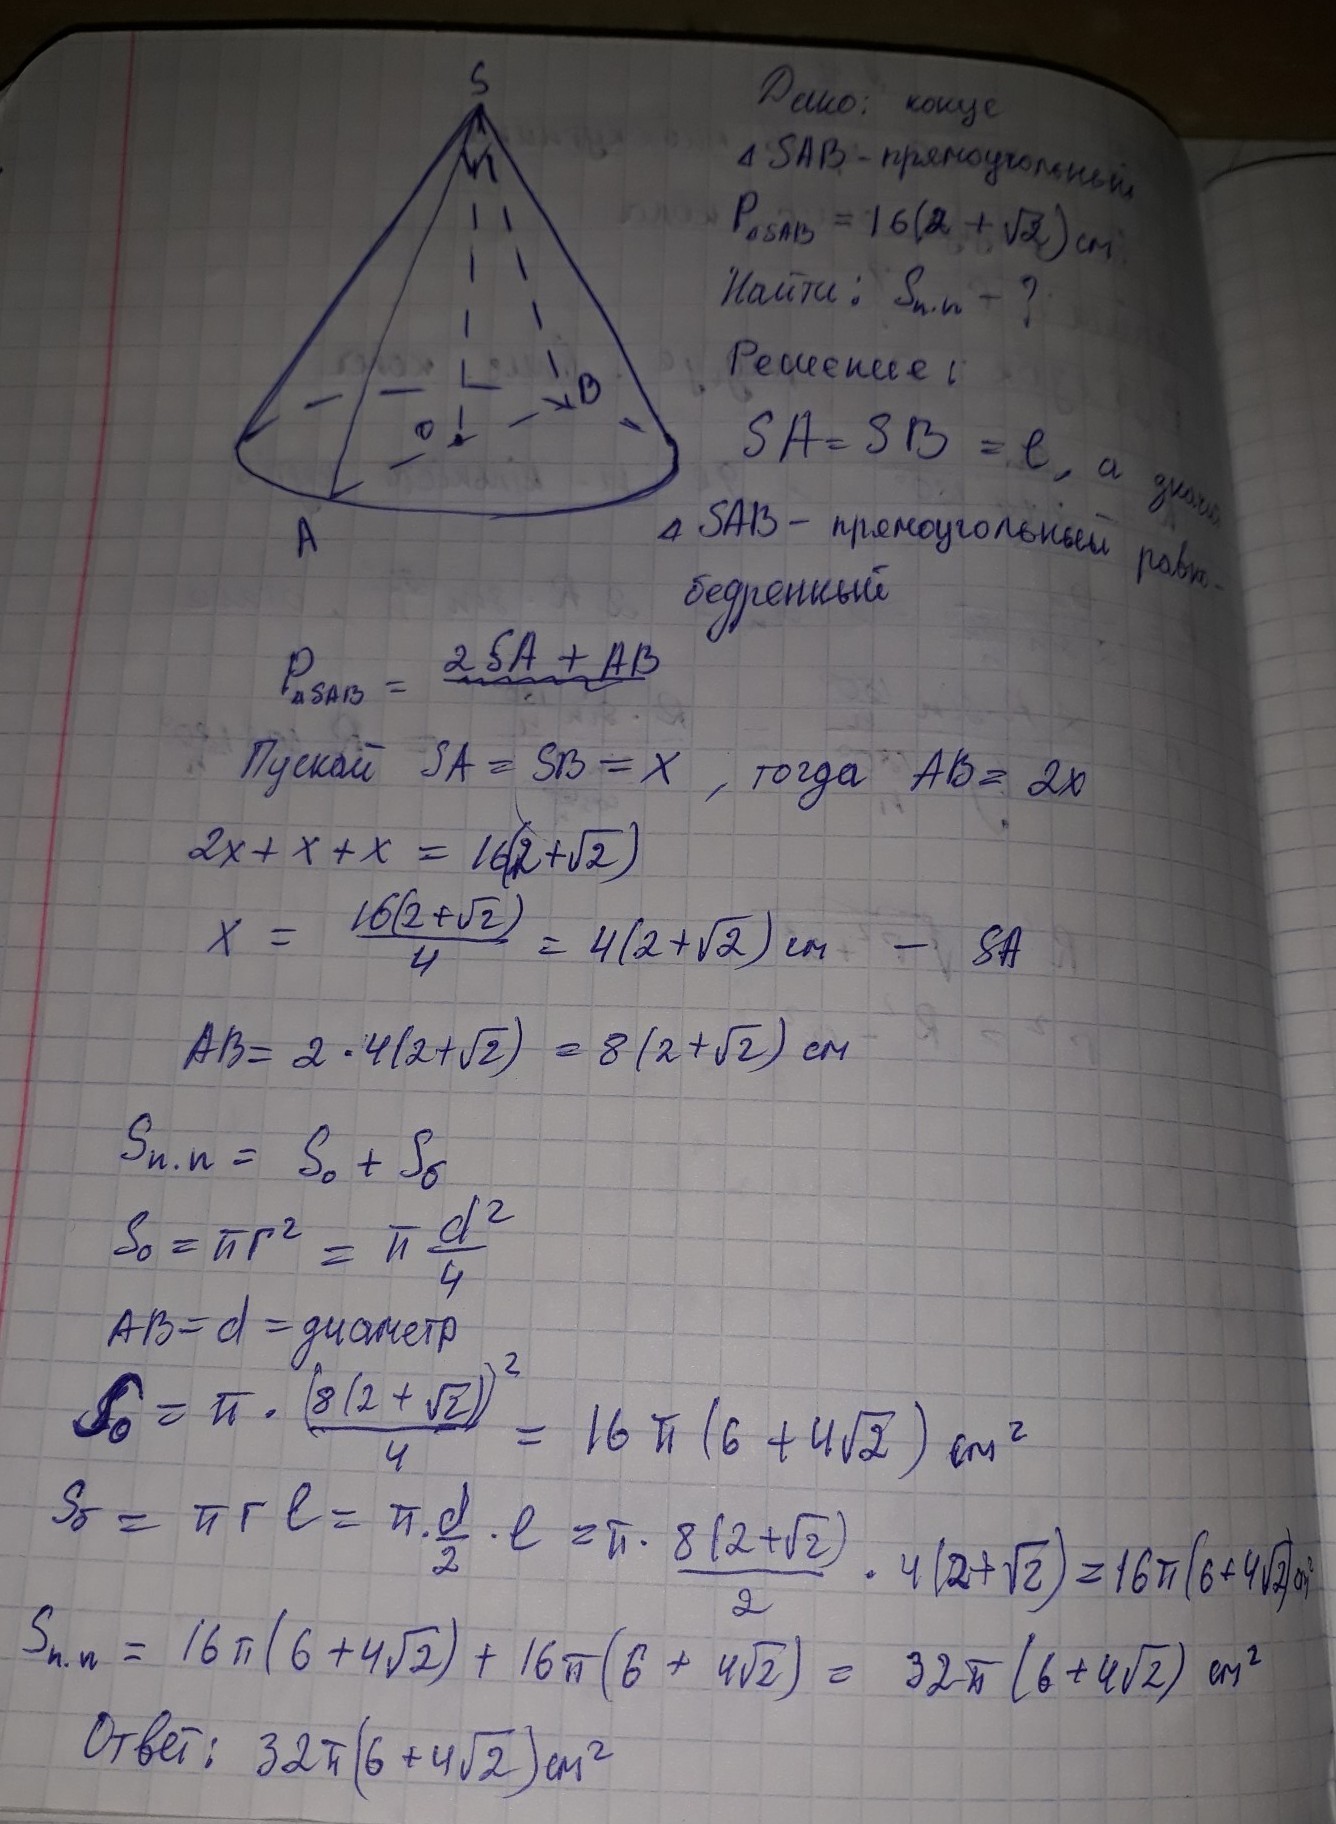 S
Дано: конус
△SAB - прямоугольный
P△SAB = 16(2 + √2) см
Найти: Sп.п - ?
Решение:
B
O
SA = SB = l, а значит
A
△SAB - прямоугольный равно-
бедренный
P△SAB = 2SA + AB
Пускай SA = SB = x, тогда AB = 2x
2x + x + x = 16(2+√2)
x = 16(2+√2)/4 = 4(2+√2) см - SA
AB = 2 · 4(2+√2) = 8(2+√2) см
Sп.п = So + Sб
So = πr² = π d²/4
AB = d = диаметр
So = π · (8(2+√2))²/4 = 16π(6 + 4√2) см²
Sб = πrl = π · d/2 · l = π · 8(2+√2)/2 · 4(2+√2) = 16π(6+4√2) см²
Sп.п = 16π(6+4√2) + 16π(6 + 4√2) = 32π(6+4√2) см²
Ответ: 32π(6+4√2) см²